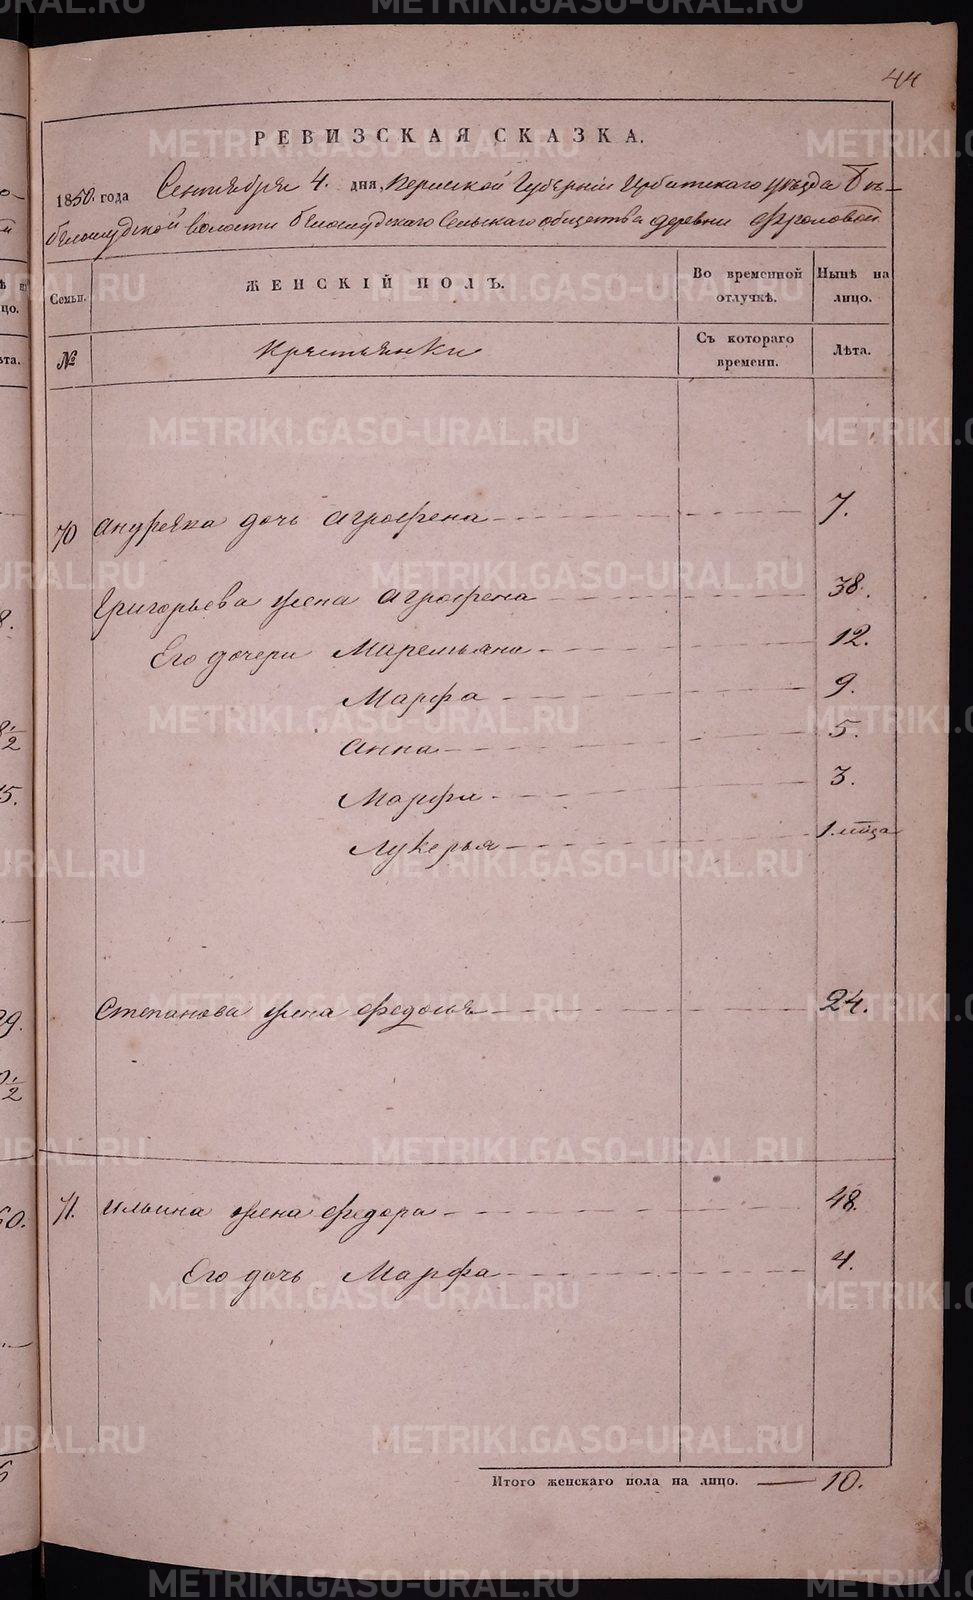 44
РЕВИЗСКАЯ СКАЗКА.
1850. года Сентября 4. дня, Пермской Губернiи Ирбитскаго уѣзда Бѣ-
бѣлослудской волости бѣлослудскаго Сельскаго общества деревни Фроловой.
Семьи. ЖЕНСКIЙ ПОЛЪ. Во временной отлучкѣ. Нынѣ на лицо.
№ Крестьянки Съ котораго времени. Лѣта.
70 Андреяна дочь Агрофена 7.
Григорьева жена Агрофена 38.
Его дочери Маремьяна 12.
Марфа 9.
Анна 5.
Марфа 3.
Лукерья 1.
Степанова жена Федосья 24.
71. Ильина жена Федора 48.
Его дочь Марфа 4.
Итого женскаго пола на лицо. 10.
METRIKI.GASO-URAL.RU